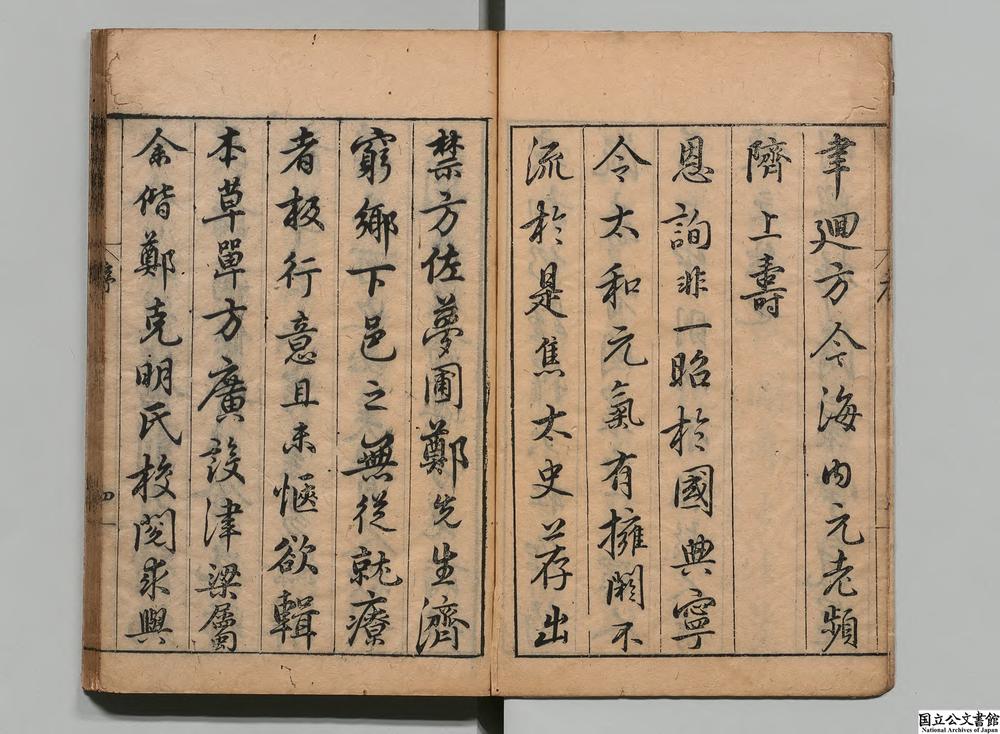 聿廻方今海内元老頻
隮上壽
恩詢非一昭於國典寧
令太和元氣有擁閼不
流於是焦太史荐出
禁方佐夢圃鄭先生濟
窮鄉下邑之無從就療
者板行意且未愜欲輯
本草單方廣設津梁屬
余偕鄭克明氏校閱求興
序
四
国立公文書館
National Archives of Japan